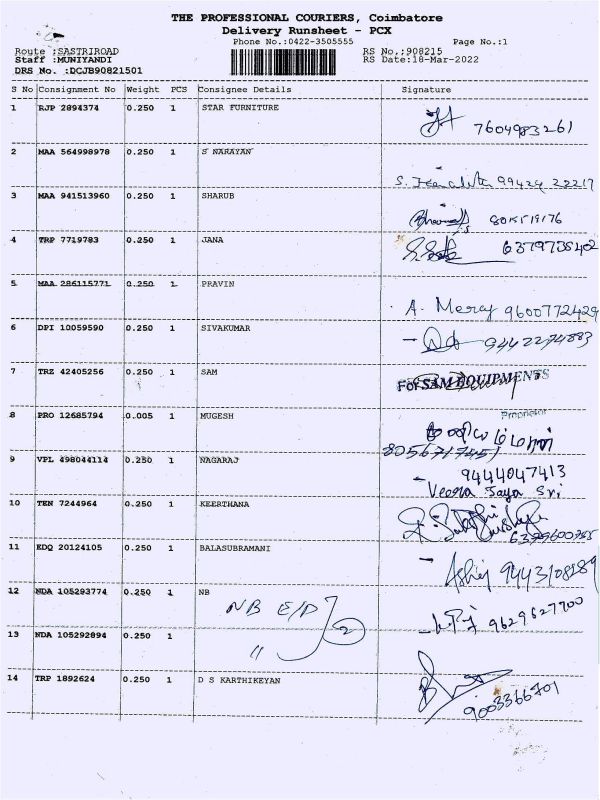 THE PROFESSIONAL COURIERS, Coimbatore
Delivery Runsheet - PCX
Phone No.:0422-3505555 Page No.:1
Route :SASTRIROAD RS No.;908215
Staff :MUNIYANDI RS Date:18-Mar-2022
DRS No. :DCJB90821501
S No Consignment No Weight PCS Consignee Details Signature
1 RJP 2894374 0.250 1 STAR FURNITURE
7604983261
2 MAA 564998978 0.250 1 S NARAYAN
S. 99424 22217
3 MAA 941513960 0.250 1 SHARUB
4 TRP 7719783 0.250 1 JANA
6379735402
5 MAA 286115771 0.250 1 PRAVIN
A. Mercy 9600772429
6 DPI 10059590 0.250 1 SIVAKUMAR
9442274883
7 TRZ 42405256 0.250 1 SAM
For SAM EQUIPMENTS
Proprietor
8 PRO 12685794 0.005 1 MUGESH
8056717451
9 VPL 498044114 0.250 1 NAGARAJ
9444047413
Veera Jaya Sri
10 TEN 7244964 0.250 1 KEERTHANA
6379600755
11 EDQ 20124105 0.250 1 BALASUBRAMANI
9443108189
12 NDA 105293774 0.250 1 NB
NB E/D 2
9629627900
13 NDA 105292894 0.250 1
"
14 TRP 1892624 0.250 1 D S KARTHIKEYAN
9003366701